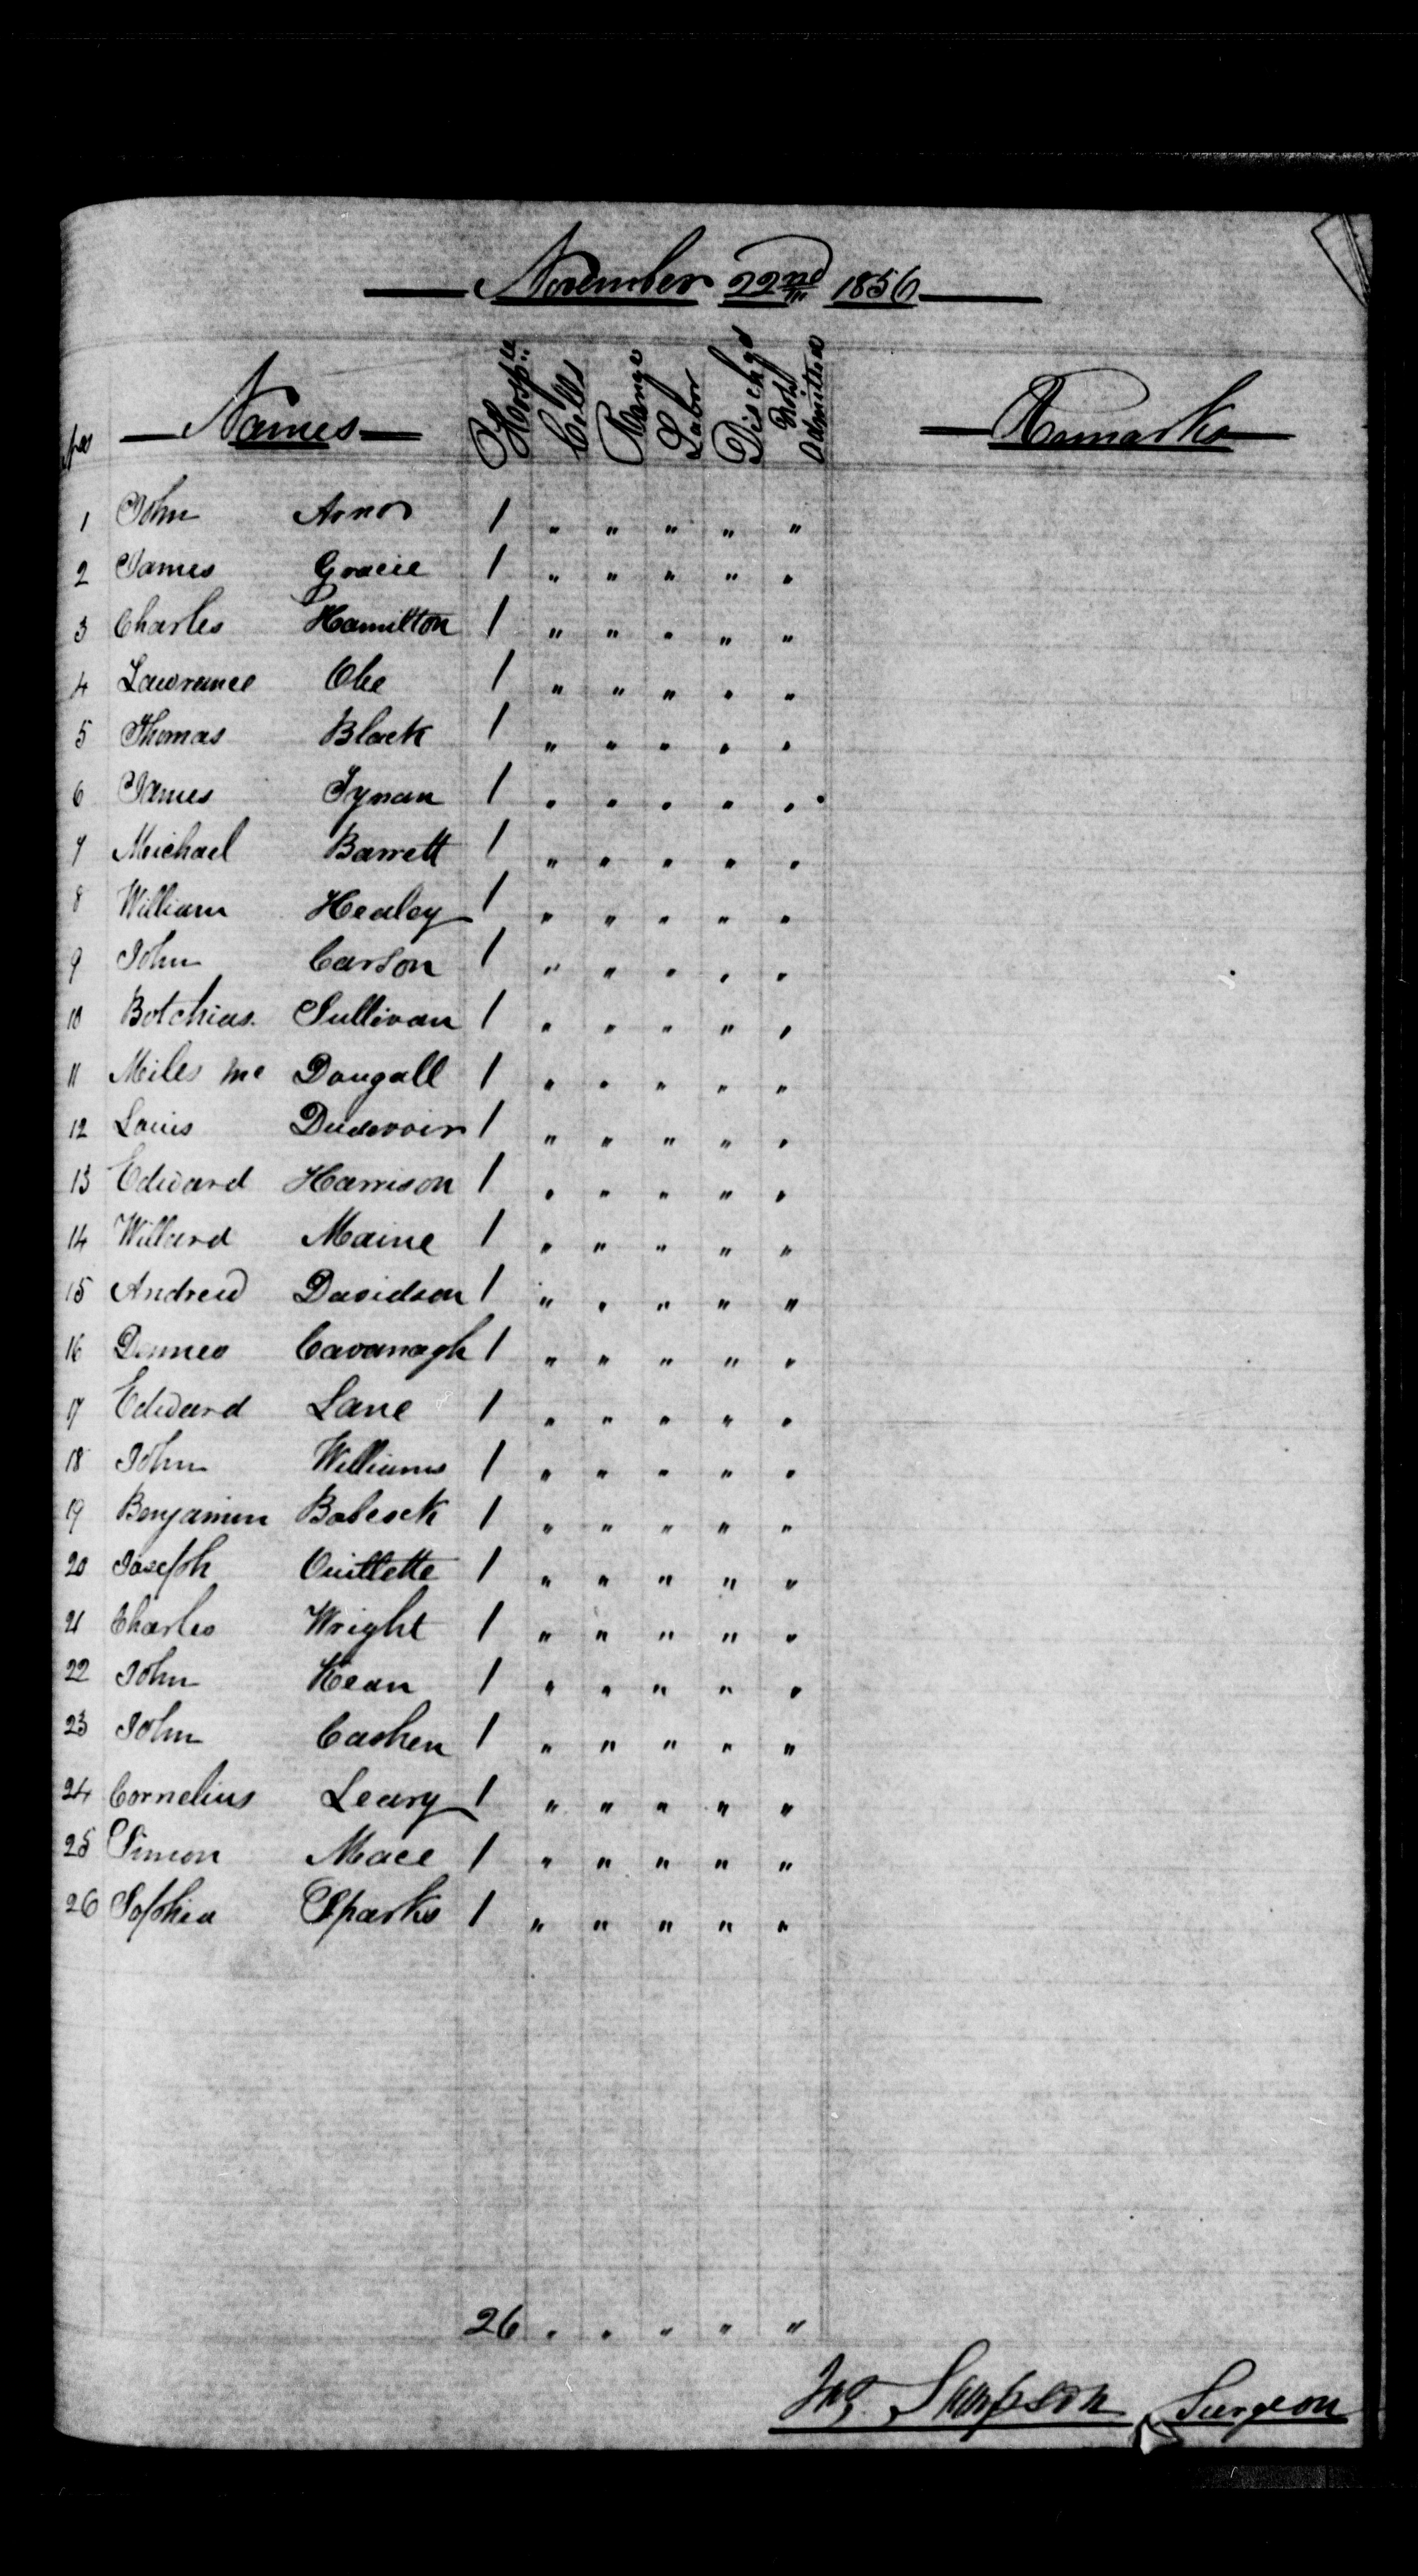 November 22nd 1856
Nos Names Hosple Cells Range Labor Dischgd Not Admitted Remarks
1 John Arno 1 " " " " "
2 James Gracie 1 " " " " "
3 Charles Hamilton 1 " " " " "
4 Lawrance Obe 1 " " " " "
5 Thomas Black 1 " " " " "
6 James Tynan 1 " " " " "
7 Michael Barrett 1 " " " " "
8 William Healey 1 " " " " "
9 John Carson 1 " " " " "
10 Botchias Sullivan 1 " " " " "
11 Miles Mc Dougall 1 " " " " "
12 Louis Dudevoir 1 " " " " "
13 Edward Harrison 1 " " " " "
14 Willard Maine 1 " " " " "
15 Andrew Davidson 1 " " " " "
16 Dennes Cavanagh 1 " " " " "
17 Edward Lane 1 " " " " "
18 John Williams 1 " " " " "
19 Benjamin Babcock 1 " " " " "
20 Joseph Ouillette 1 " " " " "
21 Charles Wright 1 " " " " "
22 John Kean 1 " " " " "
23 John Cashen 1 " " " " "
24 Cornelius Leary 1 " " " " "
25 Simon Mace 1 " " " " "
26 Sophia Sparks 1 " " " " "
26 " " " " "
Jas. Sampson Surgeon